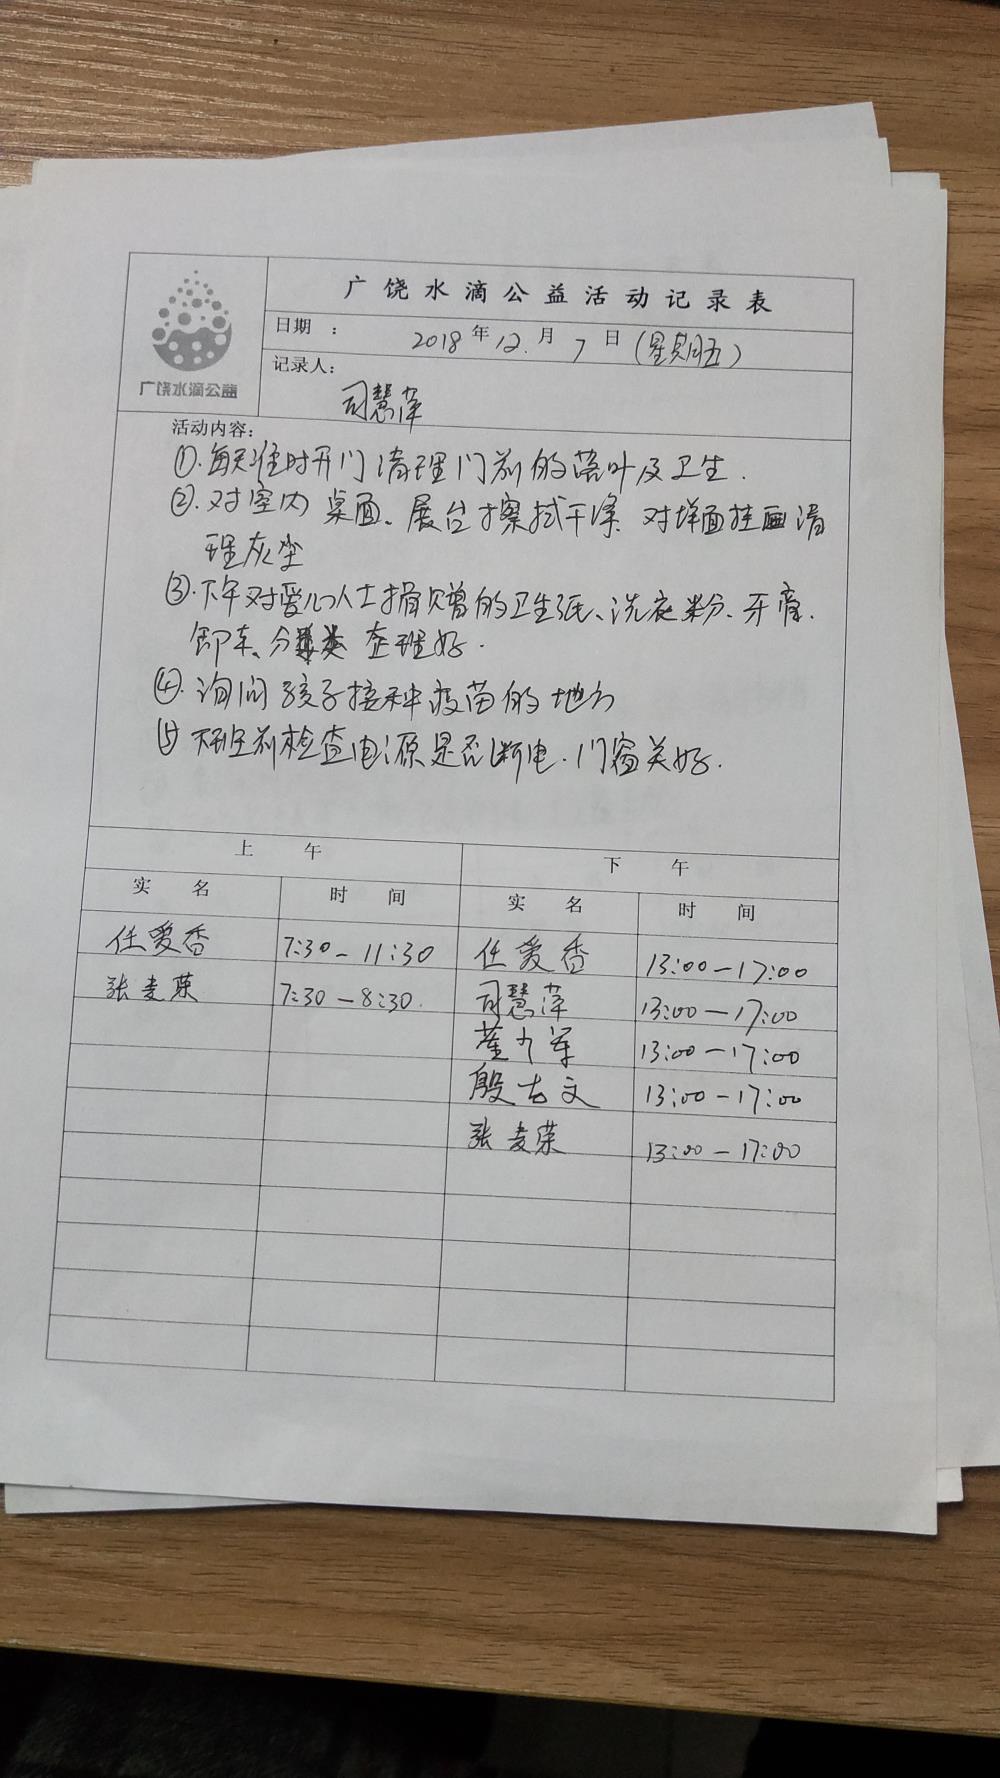 广饶水滴公益活动记录表
广饶水滴公益
日期 : 2018年12月7日(星期五)
记录人: 司慧萍
活动内容:
①.每天准时开门清理门前的落叶及卫生.
②.对室内桌面、展台擦拭干净.对墙面挂画清
理灰尘
③.下午对爱心人士捐赠的卫生纸、洗衣粉、牙膏、
分类 整理好.
④.询问孩子接种疫苗的地方
⑤下班前检查电源是否断电.门窗关好.
上 午 下 午
实 名 时 间 实 名 时 间
任爱香 7:30-11:30 任爱香 13:00-17:00
张麦荣 7:30-8:30. 司慧萍 13:00-17:00
13:00-17:00
殷古文 13:00-17:00
张麦荣 13:00-17:00